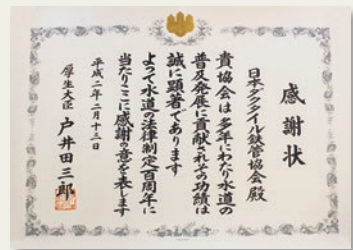 感謝状
日本ダクタイル鉄管協会殿
貴協会は多年にわたり水道の
普及発展に貢献されその功績は
誠に顕著であります
よって水道の法律制定百周年に
当たりここに感謝の意を表します
平成二年二月十三日
厚生大臣 戸井田三郎